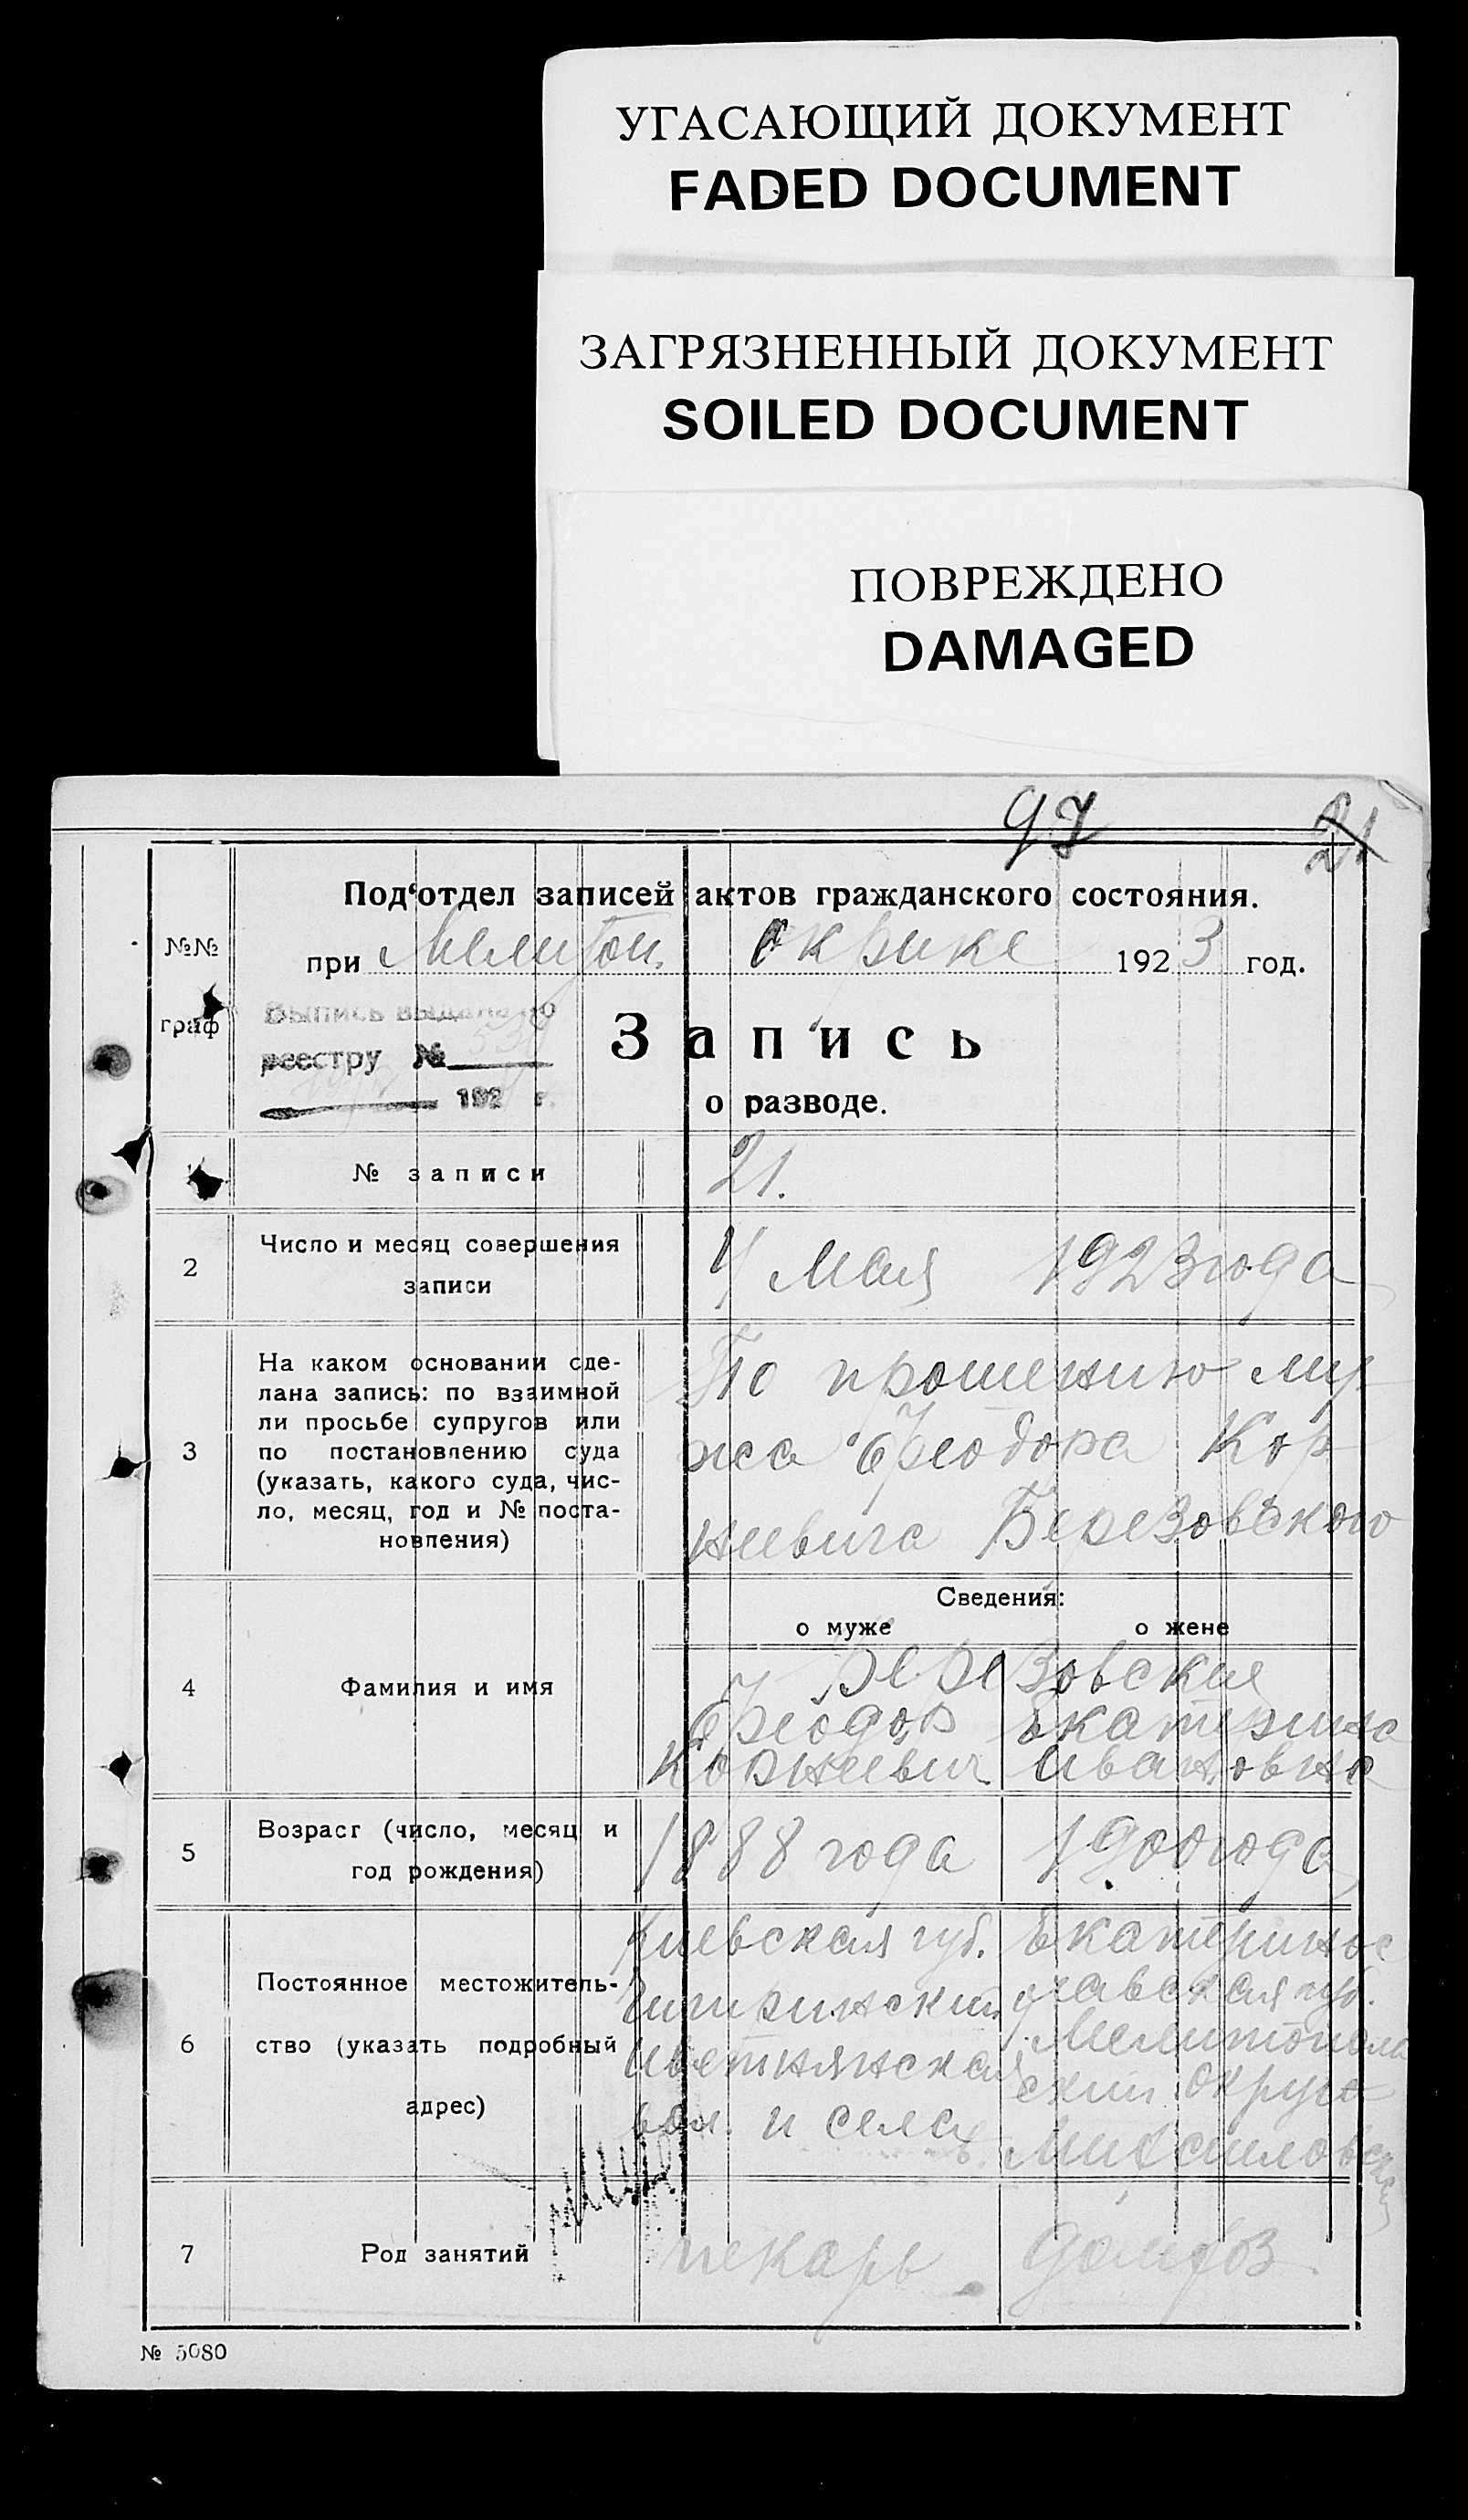 УГАСАЮЩИЙ ДОКУМЕНТ
FADED DOCUMENT
ЗАГРЯЗНЕННЫЙ ДОКУМЕНТ
SOILED DOCUMENT
ПОВРЕЖДЕНО
DAMAGED
97 21
Под‘отдел записей актов гражданского состояния.
№№ граф
при Мелитоп. 1923 год.
Выпись выдана по
реестру №
192 г.
Запись
о разводе.
№ записи 21.
2 Число и месяц совершения
записи
Мая 1923 года
3 На каком основании сде-
лана запись: по взаимной
ли просьбе супругов или
по постановлению суда
(указать, какого суда, чис-
ло, месяц, год и № поста-
новления)
По прошению му-
жа Феодора Кор
неевича Березовского
Сведения:
о муже о жене
4 Фамилия и имя
Березовския
Феодор Екатерина
Корнеевич Ивановна
5 Возраст (число, месяц и
год рождения)
1888 года 1900 года
6 Постоянное местожитель-
ство (указать подробный
адрес)
Киевская губ.
Чигиринский
вол. и села
Екатеринос
лавская губ.
Мелитополь
ский округ
Михайловская
7 Род занятий пекарь домхоз
№ 5080